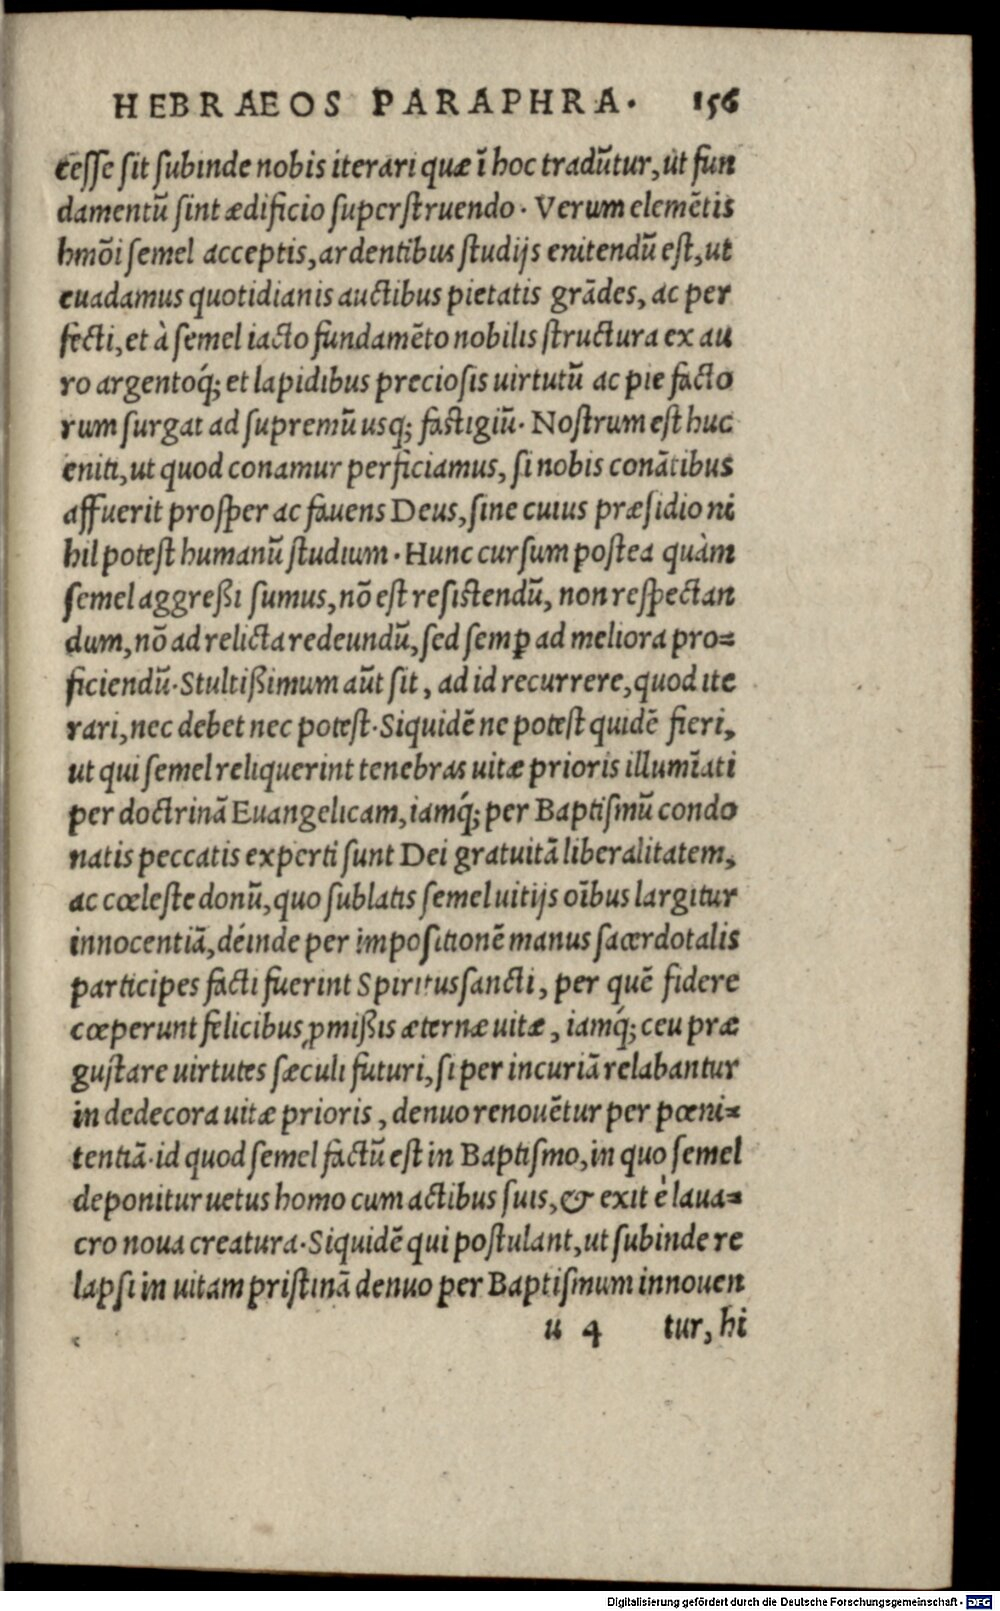 HEBRAEOS PARAPHRA. 156
cesse sit subinde nobis iterari quæ ī hoc tradūtur, ut fun
damentū sint ædificio superstruendo. Verum elemētis
hmōi semel acceptis, ardentibus studijs enitendū est, ut
euadamus quotidianis auctibus pietatis grādes, ac per
fecti, et à semel iacto fundamēto nobilis structura ex au
ro argentoq́; et lapidibus preciosis uirtutū ac pie facto
rum surgat ad supremū usq; fastigiū. Nostrum est huc
eniti, ut quod conamur perficiamus, si nobis conātibus
affuerit prosper ac fauens Deus, sine cuius præsidio ni
hil potest humanū studium. Hunc cursum postea quàm
semel aggreßi sumus, nō est resistendū, non respectan
dum, nō ad relicta redeundū, sed semꝑ ad meliora pro=
ficiendū. Stultißimum aūt sit, ad id recurrere, quod ite
rari, nec debet nec potest. Siquidē ne potest quidē fieri,
ut qui semel reliquerint tenebras uitæ prioris illumīati
per doctrinā Euangelicam, iamq́; per Baptismū condo
natis peccatis experti sunt Dei gratuitā liberalitatem,
ac cœleste donū, quo sublatis semel uitijs oībus largitur
innocentiā, déinde per impositionē manus sacerdotalis
participes facti fuerint Spiritus sancti, per quē fidere
cœperunt felicibus ꝓmißis æternæ uitæ, iamq́; ceu præ
gustare uirtutes sæculi futuri, si per incuriā relabantur
in dedecora uitæ prioris, denuo renouētur per pœni=
tentiā. id quod semel factū est in Baptismo, in quo semel
deponitur uetus homo cum actibus suis, & exit è laua=
cro noua creatura. Siquidē qui postulant, ut subinde re
lapsi in uitam pristinā denuo per Baptismum innouen
u 4 tur, hi
Digitalisierung gefördert durch die Deutsche Forschungsgemeinschaft - DFG